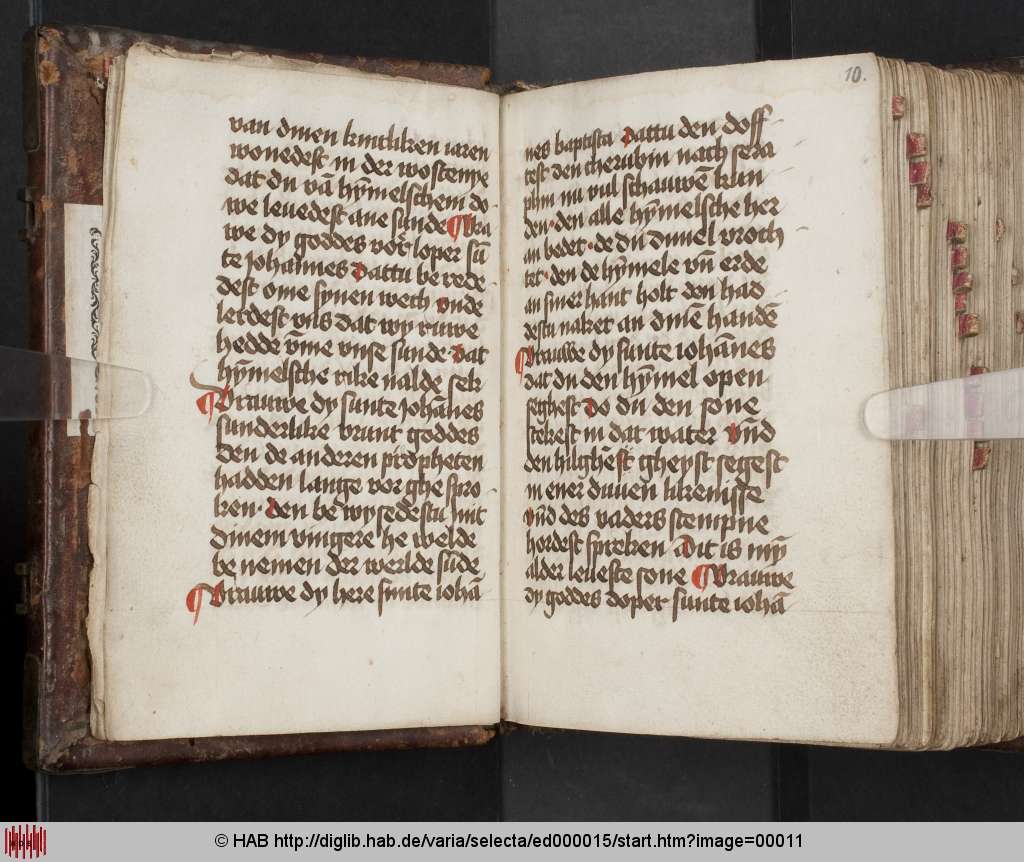 van dinen kintliken iaren
wonedest in der wostenye
dat du vā hȳmelschem do
we leuedest ane sunde ¶ Vra
we dy goddes vor loper sū
te Johannes dattu be rede
dest ome synen wech vnde
lerdest vns dat wy ruwe
hedde v̄me vnse sunde · dat
hȳmelsche rike nalde sek
¶ Vrauwe dy sunte Johānes
sunderlike vrunt goddes
Den de anderen propheten
hadden lange vor ghe spro
ken · den be wysedestu mit
dinem vingere he welde
be nemen der werlde sūde
¶ Vrauwe dy here sunte iohā
10.
nes baptista dattu den doff
test den cherubin nach sera
phin nu vul schauwē kun
den · den alle hȳmelsche her
an bedet · de du duuel vroch
tet · den de hȳmele vn̄ erde
an siner hant holt den had
destu naket an dinē handē
¶ Vrauwe dy sunte iohānes
dat du den hȳmel open
seghest do du den sone
stekest in dat water vn̄d
den hilghēst gheyst segest
in ener duuen likenisse
vn̄d des vaders stempne
hordest spreken dit is mȳ
alder leueste sone ¶ Vrauwe
dy goddes doper sunte iohā
© HAB http://diglib.hab.de/varia/selecta/ed000015/start.htm?image=00011